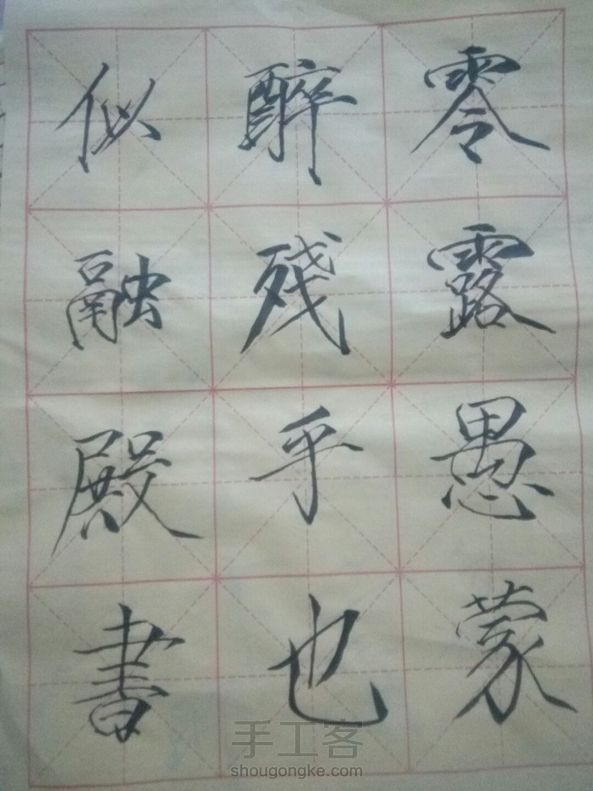 零露愚蒙
醉残乎也
似融殿書
手工客
shougongke.com